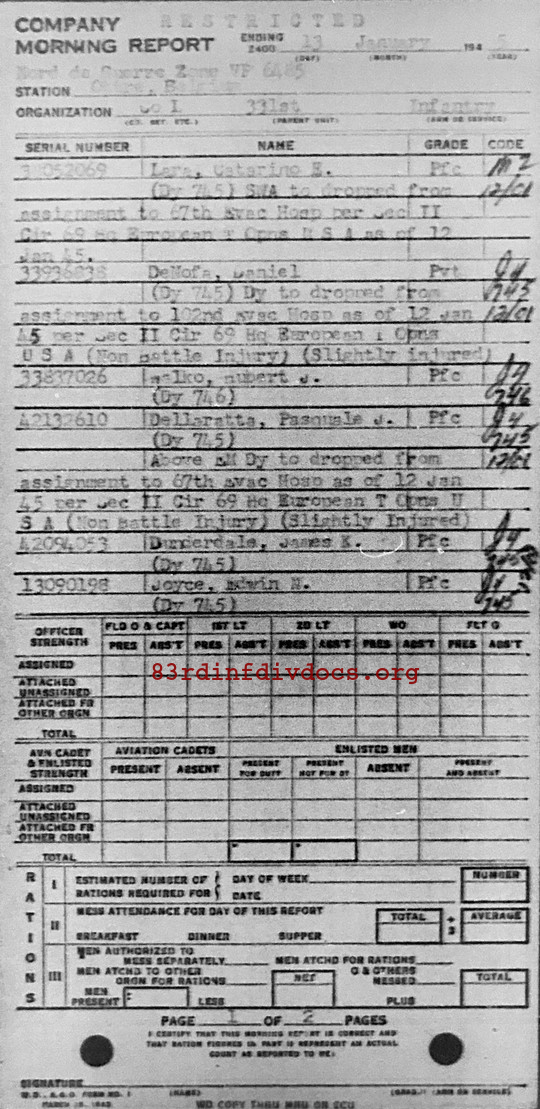 RESTRICTED
COMPANY
MORNING REPORT
ENDING 2400 13 January 194 5
(DAY) (MONTH) (YEAR)
Nord de Guerre Zone VP 6485
STATION Belgium
ORGANIZATION Co I 331st Infantry
(CO, DET, ETC.) (PARENT UNIT) (ARM OR SERVICE)
SERIAL NUMBER NAME GRADE CODE
38052069 Lara, Catarino E. Pfc
(Dy 745) SWA to dropped from
assignment to 67th Evac Hosp per Sec II
Cir 69 Hq European T Opns U S A as of 12
Jan 45.
33936838 DeNofa, Daniel Pvt
(Dy 745) Dy to dropped from 745
assignment to 102nd Evac Hosp as of 12 Jan
45 per Sec II Cir 69 Hq European T Opns
U S A (Non Battle Injury) (Slightly injured)
33837026 Hubert J. Pfc
(Dy 746) 746
42132610 Dellaratta, Pasquale J. Pfc
(Dy 745) 745
Above EM Dy to dropped from
assignment to 67th Evac Hosp as of 12 Jan
45 per Sec II Cir 69 Hq European T Opns U
S A (Non Battle Injury) (Slightly Injured)
42094053 Dunderdale, James K. Pfc
(Dy 745) 745
13090198 Joyce, Edwin N. Pfc
(Dy 745) 745
OFFICER STRENGTH FLD O & CAPT 1ST LT 2D LT WO FLT O
PRES ABS'T PRES ABS'T PRES ABS'T PRES ABS'T PRES ABS'T
ASSIGNED
83rdinfdivdocs.org
ATTACHED UNASSIGNED
ATTACHED FR OTHER ORGN
TOTAL
AVN CADET & ENLISTED STRENGTH AVIATION CADETS ENLISTED MEN
PRESENT ABSENT PRESENT FOR DUTY PRESENT NOT FOR DY ABSENT PRESENT AND ABSENT
ASSIGNED
ATTACHED UNASSIGNED
ATTACHED FR OTHER ORGN
TOTAL
RATIONS
I ESTIMATED NUMBER OF RATIONS REQUIRED FOR { DAY OF WEEK DATE NUMBER
II MESS ATTENDANCE FOR DAY OF THIS REPORT TOTAL ÷ 3 AVERAGE
BREAKFAST DINNER SUPPER
III MEN AUTHORIZED TO MESS SEPARATELY MEN ATCHD FOR RATIONS
MEN ATCHD TO OTHER ORGN FOR RATIONS NET O & OTHERS MESSED TOTAL
MEN PRESENT LESS PLUS
PAGE 1 OF 2 PAGES
I CERTIFY THAT THIS MORNING REPORT IS CORRECT AND
THAT RATION FIGURES IN PART III REPRESENT AN ACTUAL
COUNT AS REPORTED TO ME:
SIGNATURE
W.D., A.G.O. FORM NO. 1 (NAME) (GRADE) (ARM OR SERVICE)
MARCH
WD COPY THRU MRU OR SCU